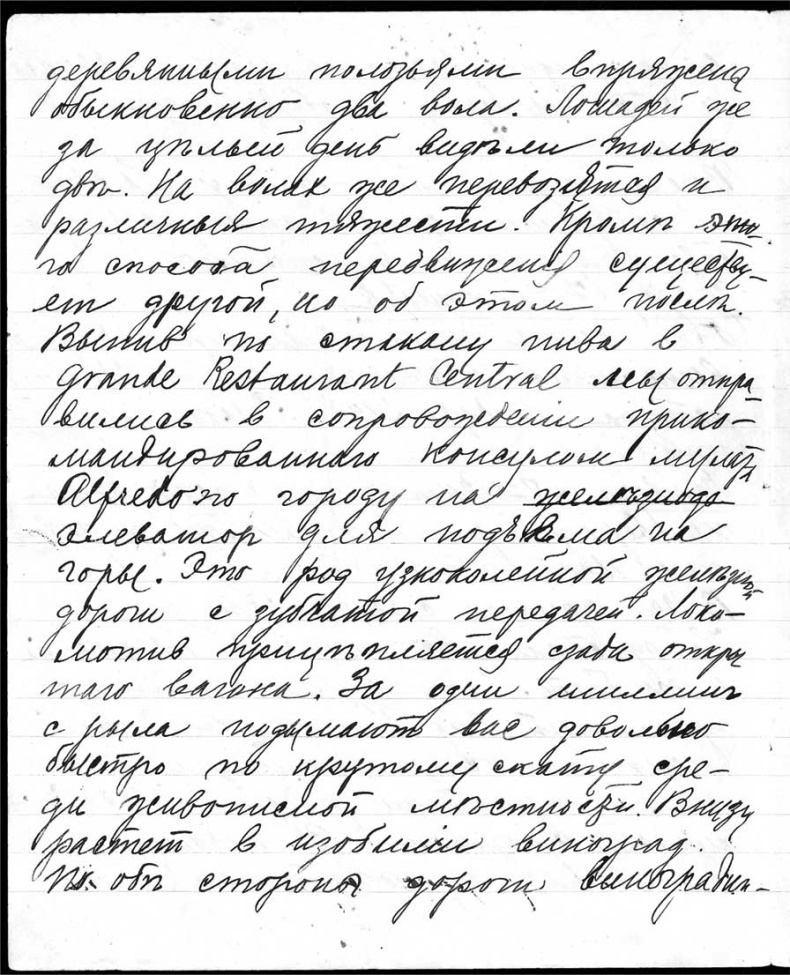 деревянными полозьями впряжены
обыкновенно два вола. Лошадей же
за цѣлый день видѣли только
двѣ. На волах же перевозятся и
различныя тяжести. Кромѣ это-
го способа передвиженія существу-
ет другой, но об этом послѣ.
Выпив по стакану пива в
Grande Restaurant Central мы отпра-
вились в сопровожденіи прико-
мандированнаго консулом мулата
Alfredo по городу на железнодо
элеватор для подъема на
горы. Это род узкоколейной желѣзной
дороги с зубчатой передачей. Локо-
мотив прицѣпляется сзади откры
таго вагона. За один шиллинг
с рыла подымают вас довольно
быстро по крутому скату сре-
ди живописной мѣстности. Внизу
растет в изобиліи виноград.
По обѣ стороны дороги виноградни-